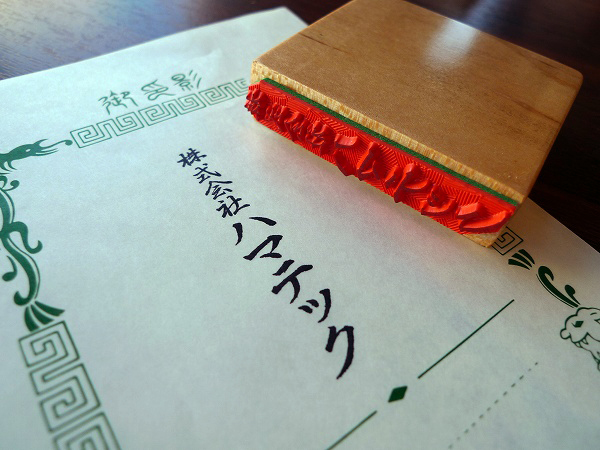 御受影
株式会社ハマテック